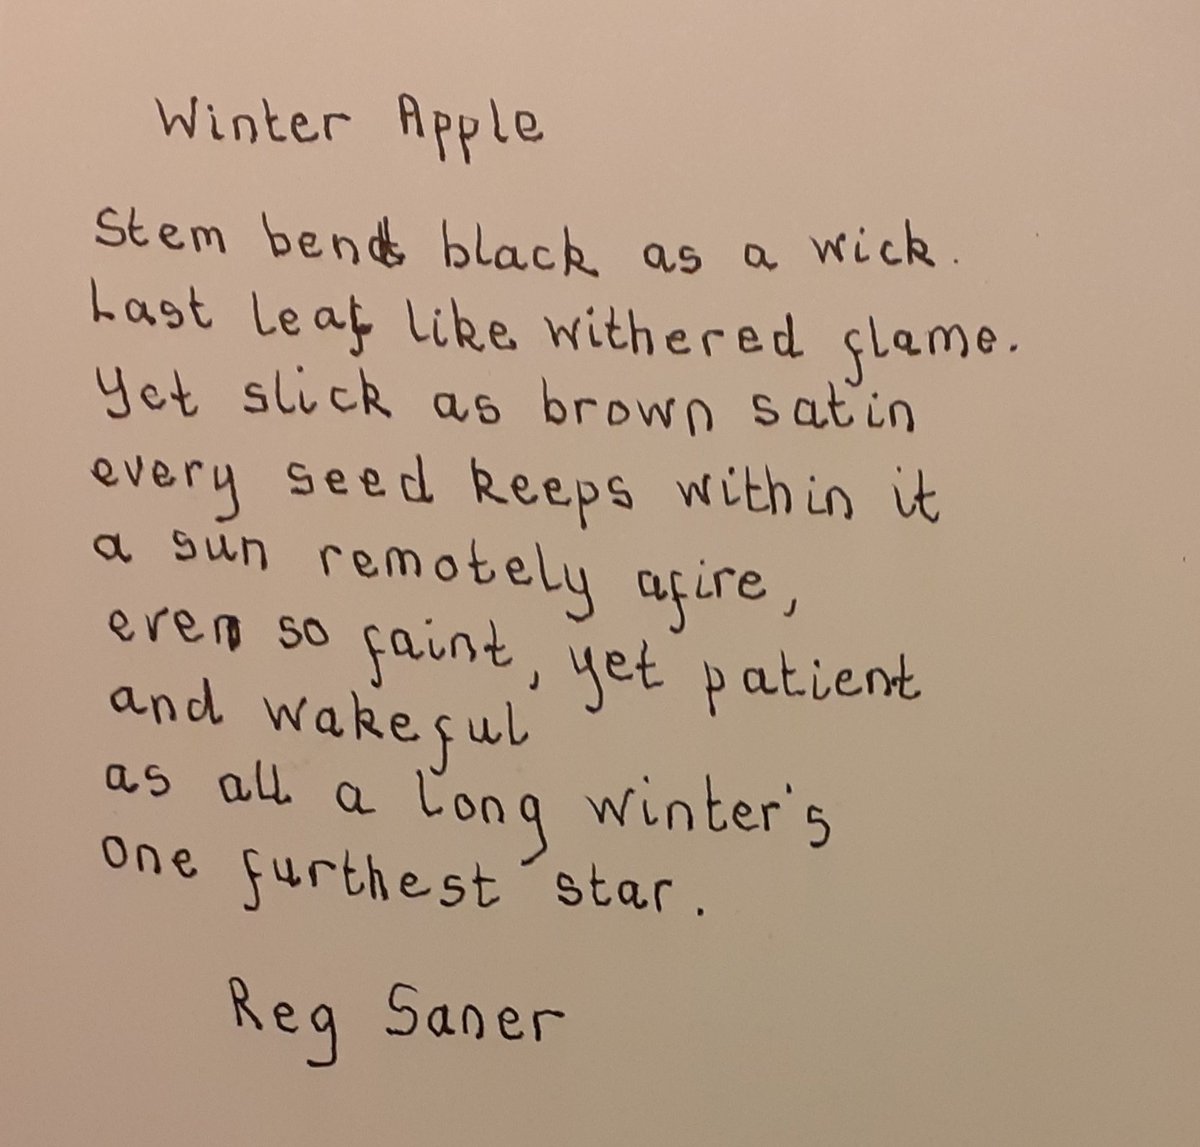 Winter Apple
Stem bent black as a wick.
Last leaf like withered flame.
Yet slick as brown satin
every seed keeps within it
a sun remotely afire,
even so faint, yet patient
and wakeful
as all a long winter's
one furthest star.
Reg Saner